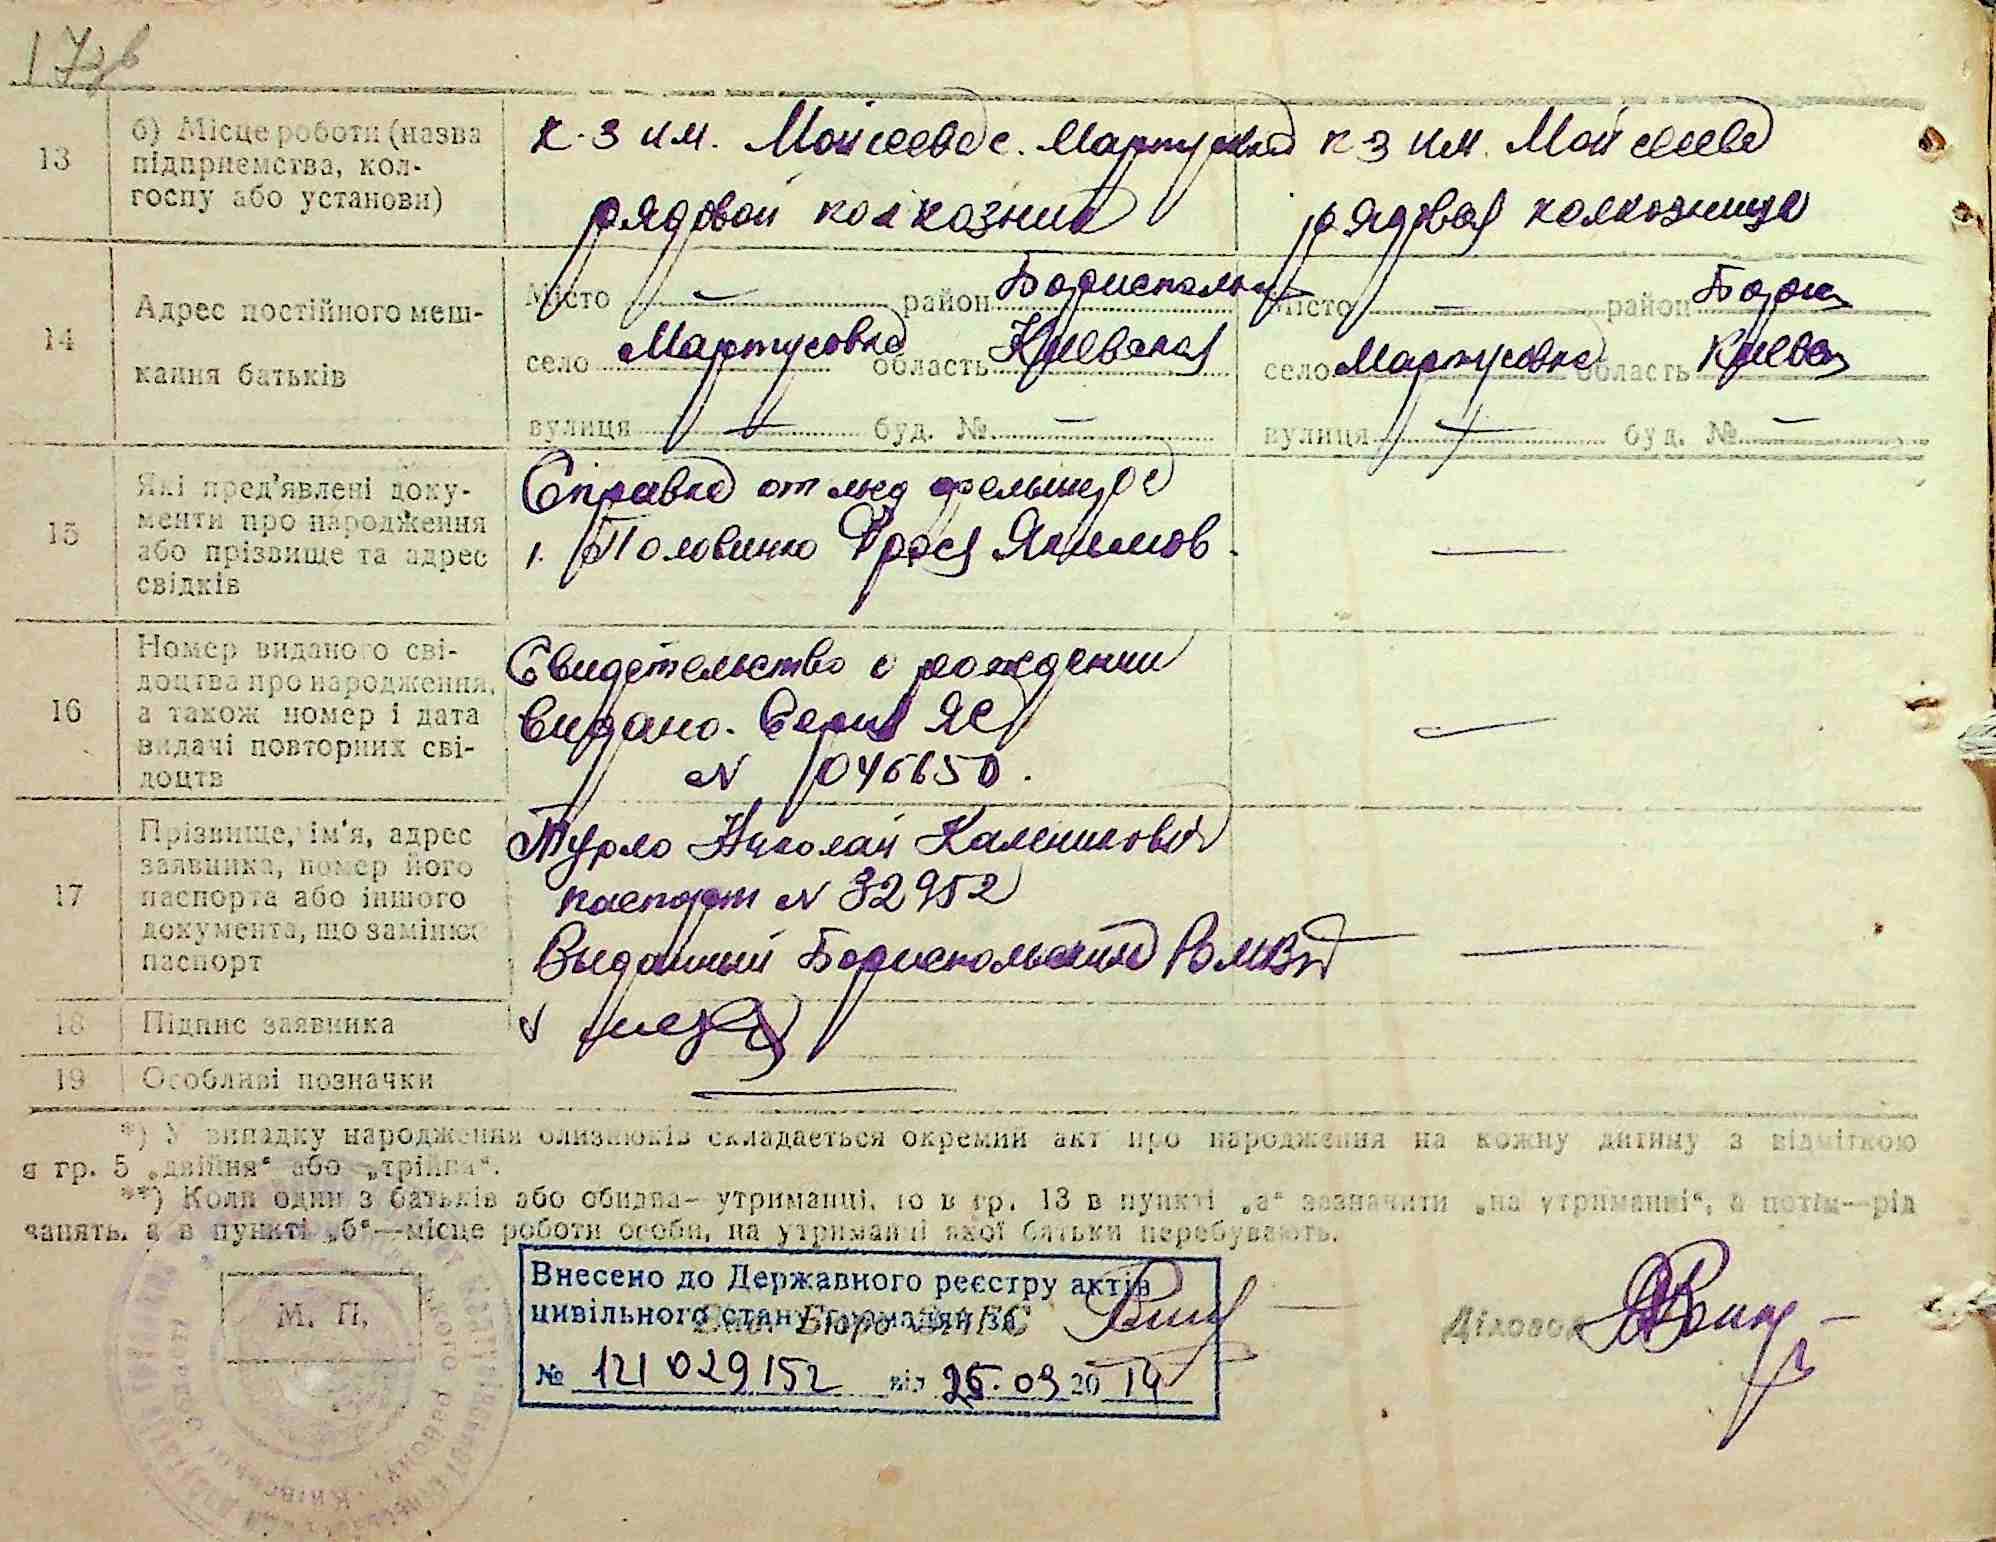 173в
13
б) Місце роботи (назва
підприємства, кол-
госпу або установи)
к-з им. Мойсеева с. Мартусовка
рядовой колхозник
к-з им. Мойсеева
рядовая колхозница
14
Адрес постійного меш-
кання батьків
Місто — район Бориспольск
село Мартусовка область Киевская
вулиця — буд. № —
Місто — район Борис
село Мартусовка область Киевс
вулиця — буд. № —
15
Які пред'явлені доку-
менти про народження
або прізвище та адрес
свідків
Справка от мед фельшера
1. Половинко Фрося Якимов.
—
16
Номер виданого сві-
доцтва про народження,
а також номер і дата
видачі повторних сві-
доцтв
Свидетельство о рождении
видано. Серия ЯС
N 046650.
—
17
Прізвище, ім'я, адрес
заявника, номер його
паспорта або іншого
документа, що замінює
паспорт
Турло Николай Каленикович
паспорт N 32952
Выданный Бориспольским РОМВД
—
18
Підпис заявника
19
Особливі позначки
—
*) У випадку народження близнюків складається окремий акт про народження на кожну дитину з відміткою
в гр. 5 „двійня“ або „трійня“.
**) Коли один з батьків або обидва— утриманці, то в гр. 13 в пункті „а“ зазначити „на утриманні“, а потім—рід
занять, а в пункті „б“—місце роботи особи, на утриманні якої батьки перебувають.
М. П.
Внесено до Державного реєстру актів
цивільного стану громадян за
№ 121029152 від 25.09 2014
Зав. Бюро ЗАГС
Діловод